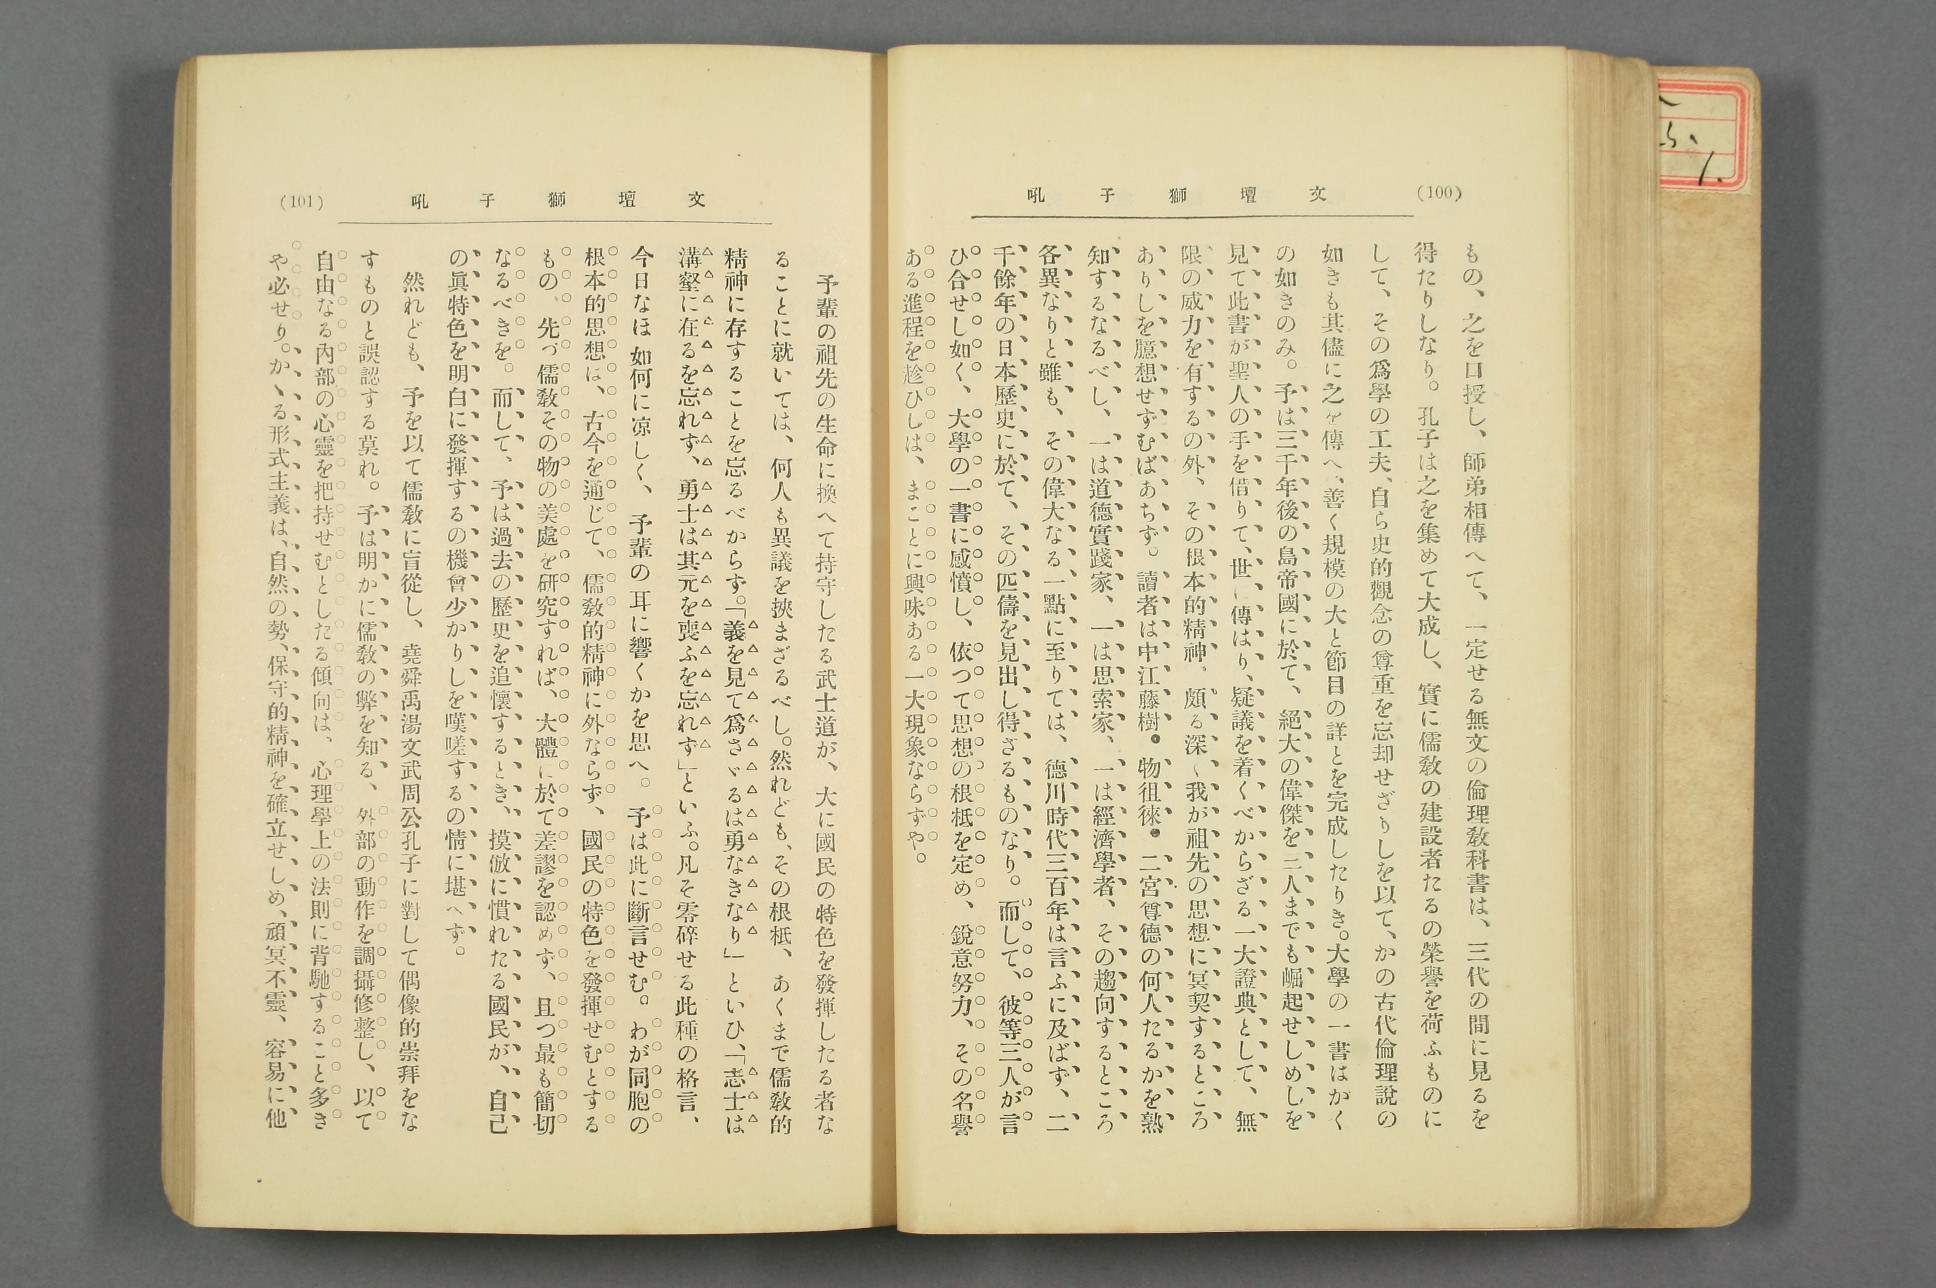 (100)
文壇獅子吼
もの、之を口授し、師弟相傳へて、一定せる無文の倫理敎科書は、三代の間に見るを
得たりしなり。孔子は之を集めて大成し、實に儒敎の建設者たるの榮譽を荷ふものに
して、その爲學の工夫、自ら史的觀念の尊重を忘却せざりしを以て、かの古代倫理說の
如きも其儘に之を傳へ、善く規模の大と節目の詳とを完成したりき。大學の一書はかく
の如きのみ。予は三千年後の島帝國に於て、絕大の偉傑を三人までも崛起せしめしを
見て此書が聖人の手を借りて、世に傳はり、疑議を着くべからざる一大證典として、無
限の威力を有するの外、その根本的精神、頗る深く我が祖先の思想に冥契するところ
ありしを臆想せずむばあらず。讀者は中江藤樹。物徂徠。二宮尊德の何人たるかを熟
知するなるべし、一は道德實踐家、一は思索家、一は經濟學者、その趨向するところ
各異なりと雖も、その偉大なる一點に至りては、德川時代三百年は言ふに及ばず、二
千餘年の日本歷史に於て、その匹儔を見出し得ざるものなり。而して、彼等三人が言
ひ合せし如く、大學の一書に感憤し、依つて思想の根柢を定め、銳意努力、その名譽
ある進程を趁ひしは、まことに興味ある一大現象ならずや。
文壇獅子吼
(101)
予輩の祖先の生命に換へて持守したる武士道が、大に國民の特色を發揮したる者な
ることに就いては、何人も異議を挾まざるべし。然れども、その根柢、あくまで儒敎的
精神に存することを忘るべからず。「義を見て爲さゞるは勇なきなり」といひ、「志士は
溝壑に在るを忘れず、勇士は其元を喪ふを忘れず」といふ。凡そ零碎せる此種の格言、
今日なほ如何に凉しく、予輩の耳に響くかを思へ。予は此に斷言せむ。わが同胞の
根本的思想は、古今を通じて、儒敎的精神に外ならず、國民の特色を發揮せむとする
もの、先づ儒敎その物の美處を硏究すれば、大體に於て差謬を認めず、且つ最も簡切
なるべきを。而して、予は過去の歷史を追懷するとき、摸倣に慣れたる國民が、自己
の眞特色を明白に發揮するの機會少かりしを嘆嗟するの情に堪へず。
然れども、予を以て儒敎に盲從し、堯舜禹湯文武周公孔子に對して偶像的崇拜をな
すものと誤認する莫れ。予は明かに儒敎の弊を知る、外部の動作を調攝修整し、以て
自由なる內部の心靈を把持せむとしたる傾向は、心理學上の法則に背馳すること多き
や必せり。かゝる形式主義は、自然の勢、保守的精神を確立せしめ、頑冥不靈、容易に他